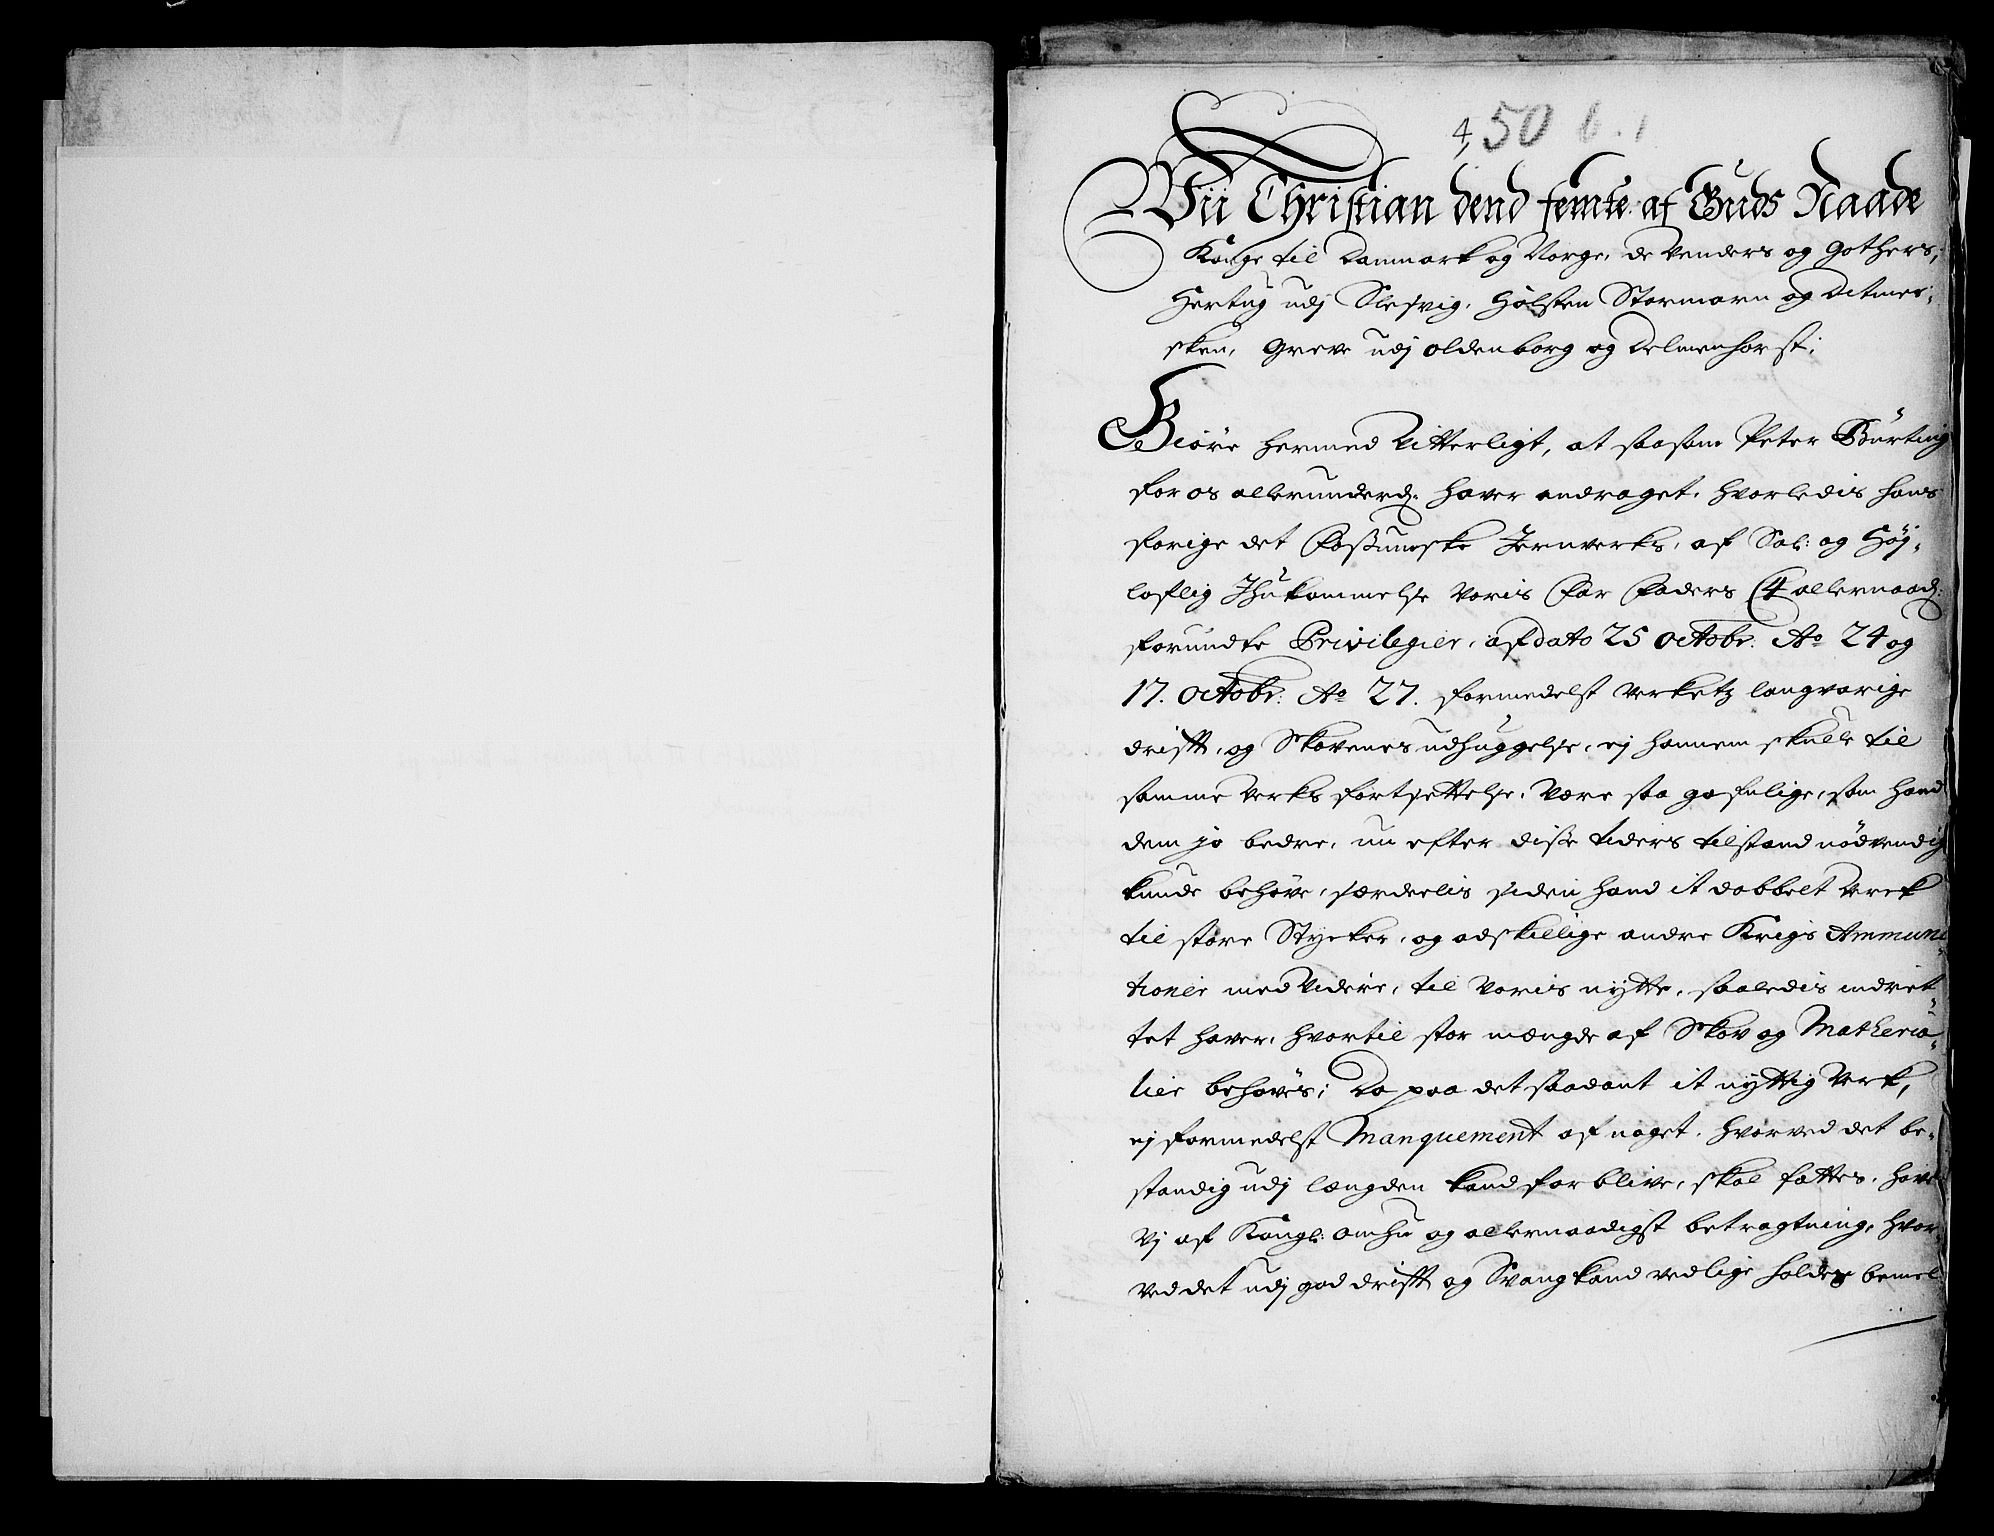 4, 50 b. 1
Wii Christian dend femte af Guds Naade
Konge til Danmark og Norge, de Venders og Gothers,
Hertug udj Slesvig, Holsten Stormarn og Ditmer-
sken, Greve udj Oldenborg og Delmenhorst;
Giøre hermed Vitterligt, at saasom Peter Børting
for os allerunderd: haver andraget, hvorledis hans
forige det Fossumske Jernverks, af Sal: og Høj-
loflig Ihukommelse Voris Far Faders C4 allernaad:
forundte Privilegier, af dato 25 Octobr: Ao 24 og
17. Octobr: Ao 27. formedelst Verketz langvarige
drifft, og Skovenes udhuggelse, ej hannem skulle til
samme Verks fortsettelse, være saa gafnlige, som hand
dem jo bedre, nu efter disse tiders tilstand nødvendig
kunde behøve, særdelis siden hand it dobbelt Verk
til store Stycker, og adskillige andre Krigs Ammuni-
tioner med Videre, til Voris nytte, saaledis indret-
tet haver, hvortil stor mængde af Skov og Matheria-
lier behøves; Da paa det saadant it nyttig Verk,
ej formedelst Manquement af noget, hvorved det be-
standig udj længden kand forblive, skal fattes, have
Vj af Kongl: omhu og allernaadigst betragtning, hvor
ved det udj god drifft og Svang kand vedlige holdes bemel